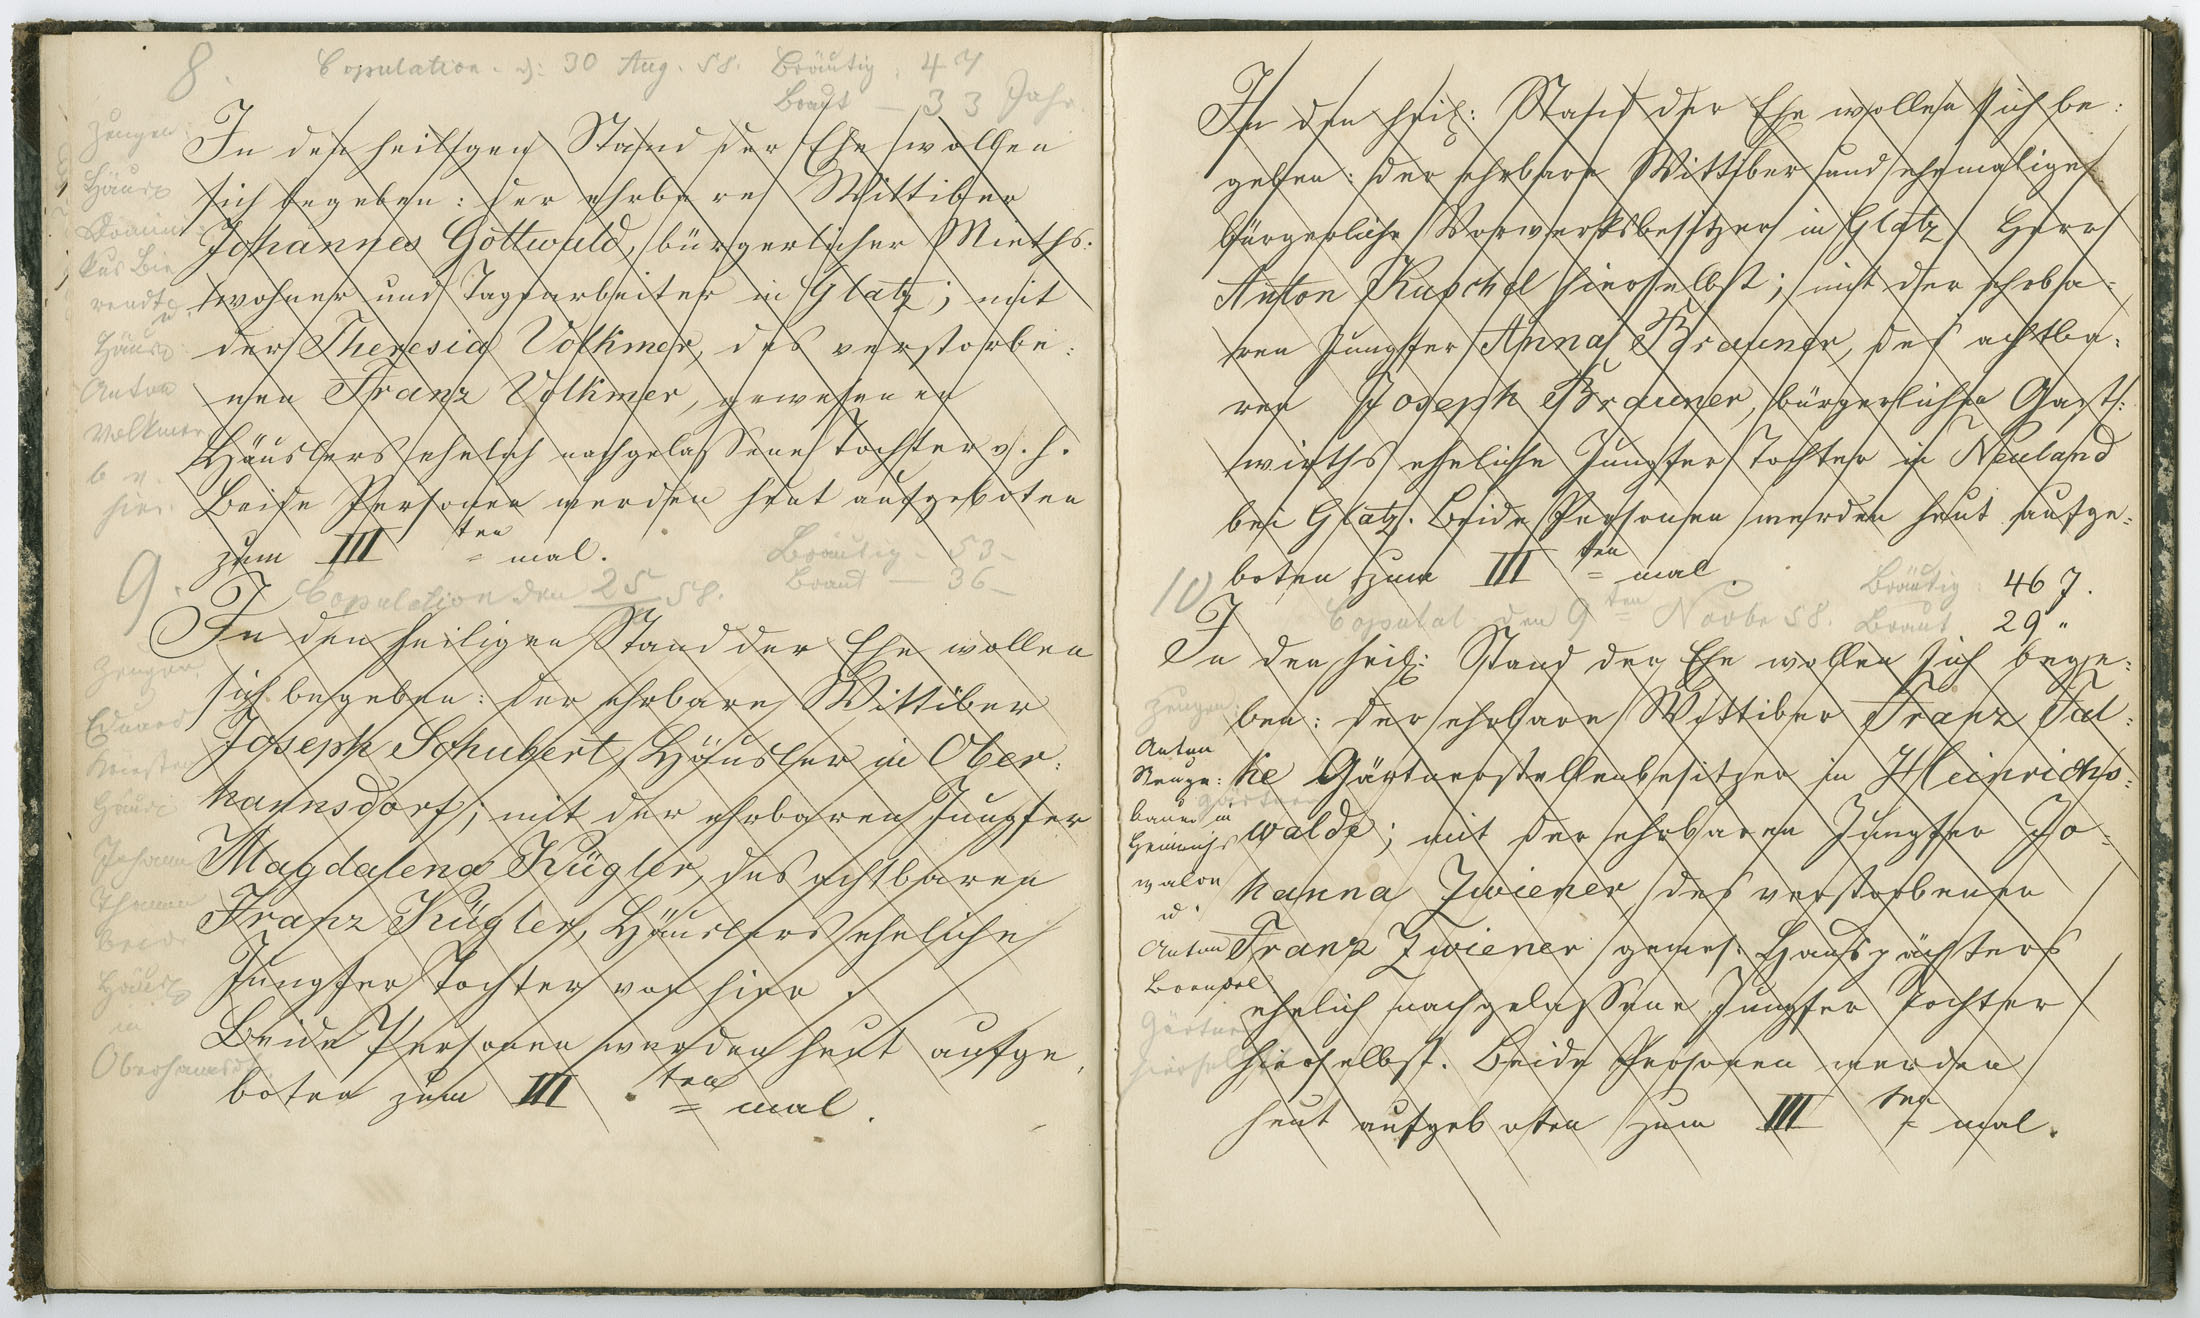 8. Copulation d: 30 Aug. 58. Bräutig. 47
Braut — 33 Jahr.
Zeugen:
Häusr
In den heiligen Stand der Ehe wollen
sich begeben: der ehrbare Wittiber
Johannes Gottwald, bürgerlicher Mieths:
wohner und Tagearbeiter in Glatz; mit
der Theresia Volkmer, des verstorbe:
nen Franz Volkmer, gewesenen
Häuslers ehelich nachgelassene Tochter v. h.
Beide Personen werden heut aufgeboten
zum III ten = mal.
u.
Häusr
Anton
Volkmer
b v
hier.
9. Copulation den 25 58. Bräutig — 53 —
Braut — 36 —
In den heiligen Stand der Ehe wollen
sich begeben: der ehrbare Wittiber
Joseph Schubert, Häusler in Ober:
hannsdorf; mit der ehrbaren Jungfer
Magdalena Kügler, des achtbaren
Franz Kügler, Häuslers eheliche
Jungfer Tochter von hier.
Beide Personen werden heut aufge,
boten zum III ten = mal.
Zeugen
Eduard
Häusr
Johann
Beide
Häusr
in
Oberhannsdf.
In den heil: Stand der Ehe wollen sich be:
geben: der ehrbare Wittiber und ehemalige
bürgerliche Vorwerksbesitzer in Glatz Herr
Anton Kuschel hierselbst; mit der ehrba-
ren Jungfer Anna Brauner, des achtba-
ren Joseph Brauner, bürgerlichen Gast:
wirths eheliche Jungfer Tochter in Neuland
bei Glatz. Beide Personen werden heut aufge-
boten zum III ten = mal.
10 Copulat. den 9 ten Novbr 58. Bräutig: 46 J.
Braut 29 "
In den heil: Stand der Ehe wollen sich bege-
ben: der ehrbare Wittiber Franz Tal-
ke Gärtnerstellenbesitzer in Heinrichs-
walde; mit der ehrbaren Jungfer Jo-
hanna Zwiener, des verstorbenen
Franz Zwiener gewes: Hauspächters
ehelich nachgelassene Jungfer Tochter
hierselbst. Beide Personen werden
heut aufgeboten zum III ten = mal.
Zeugen:
Anton
bauer in
u.
Anton
Gärtner
hierselbst